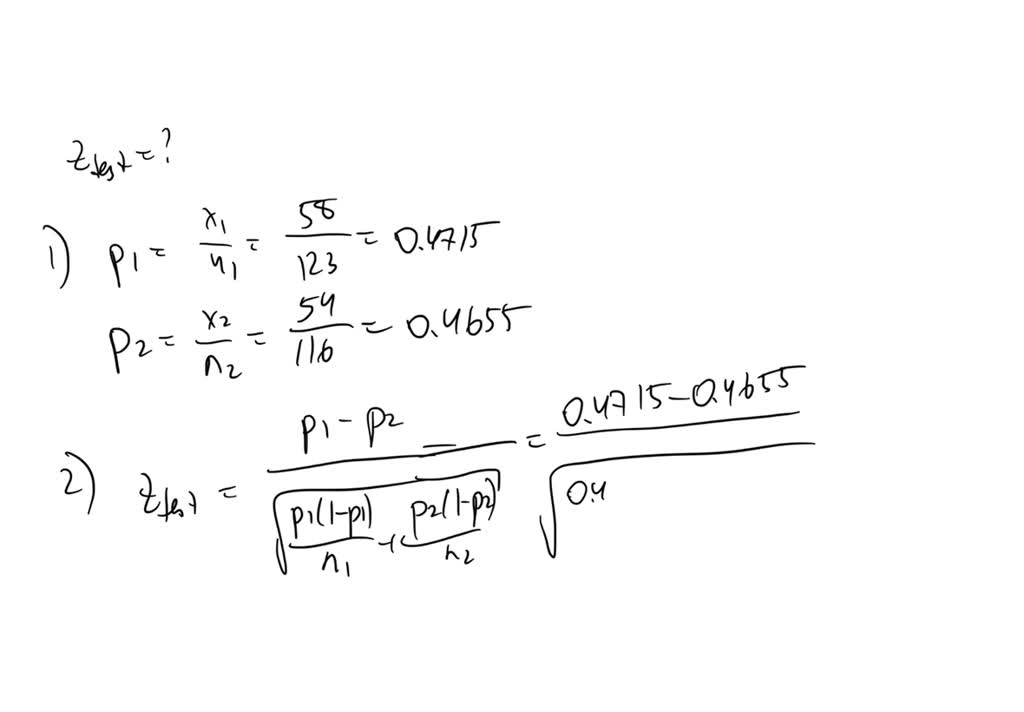 z_test = ?
1) p1 = x1/n1 = 58/123 = 0.4715
p2 = x2/n2 = 54/116 = 0.4655
2) z_test = (p1 - p2)/√(p1(1-p1)/n1 + p2(1-p2)/n2) = (0.4715-0.4655)/√(0.4